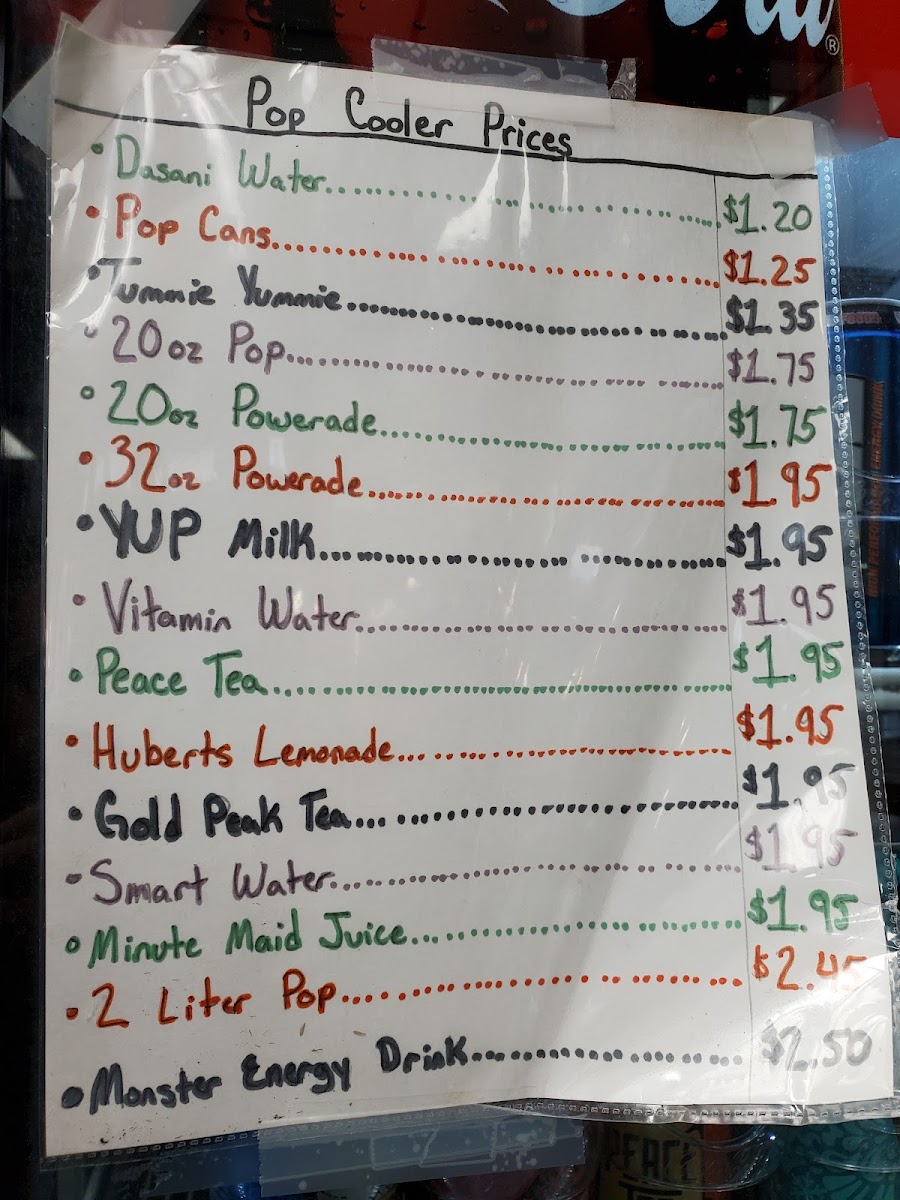 Pop Cooler Prices
• Dasani Water..................$1.20
• Pop Cans..................$1.25
• Tummie Yummie..................$1.35
• 20oz Pop..................$1.75
• 20oz Powerade..................$1.75
• 32oz Powerade..................$1.95
• YUP Milk..................$1.95
• Vitamin Water..................$1.95
• Peace Tea..................$1.95
• Huberts Lemonade..................$1.95
• Gold Peak Tea..................$1.95
• Smart Water..................$1.95
• Minute Maid Juice..................$1.95
• 2 Liter Pop..................$2.45
• Monster Energy Drink..................$2.50
PEACE